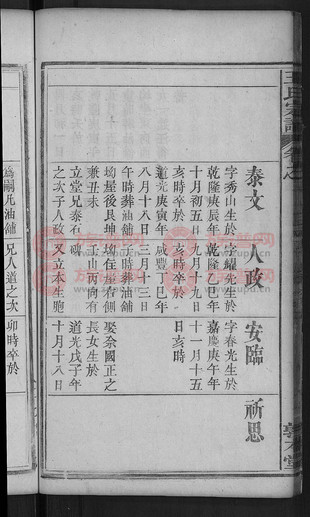 王氏宗譜 卷之
泰文 人政 安臨 祈思
字秀山生於 字耀先生於 字春光生於
乾隆庚辰年 乾隆乙巳年 嘉慶庚午年
十月初五日 九月十九日 十一月十五
亥時卒於 亥時卒於 日亥時
道光庚寅年 咸豐丁巳年
八月十八日 三月十三日
午時葬油舖 子時葬油舖
坳屋後艮坤 坳住屋右側 娶奈國正之
兼丑未 壬山丙向有 長女生於
立堂兄泰石 碑 道光戊子年
之次子人政 又立本生胞 十月十八日
爲嗣 油舖 兄人道之次 卯時卒於